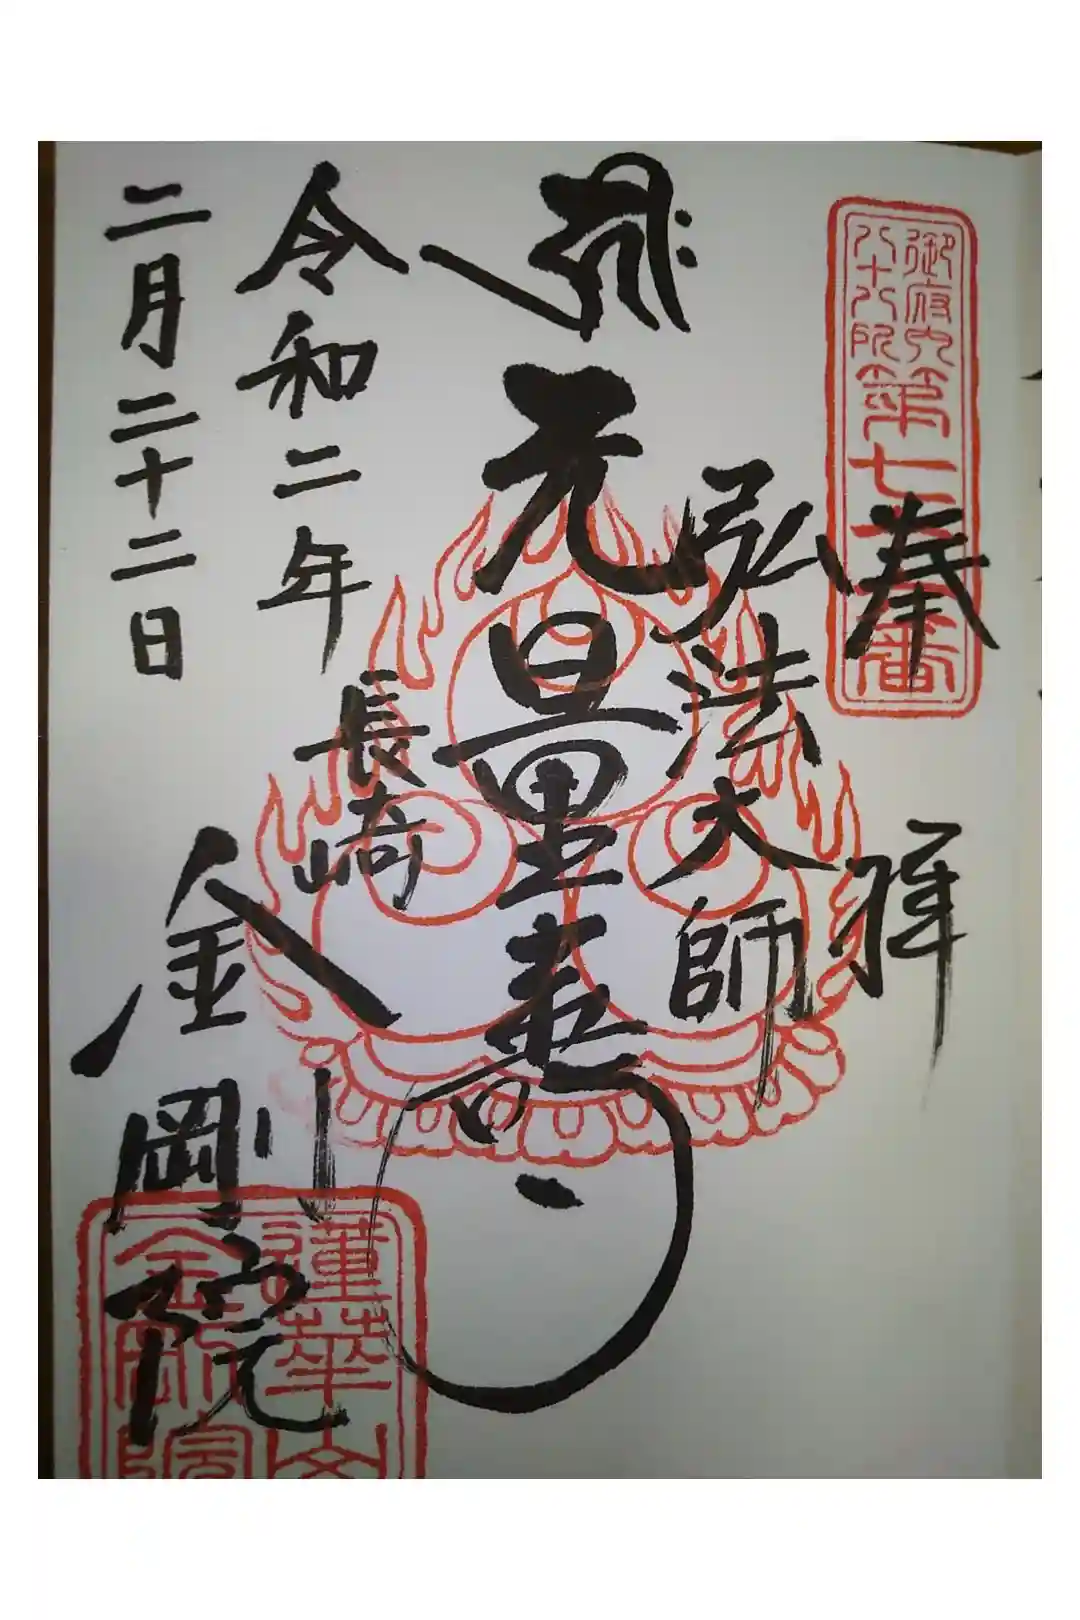 御府内
八十八所
第七十六番
奉拝
弘法大師
𑖮𑖿𑖨𑖱𑖾
无量壽
長崎
令和二年
二月二十二日
金剛院
蓮華山
金剛院